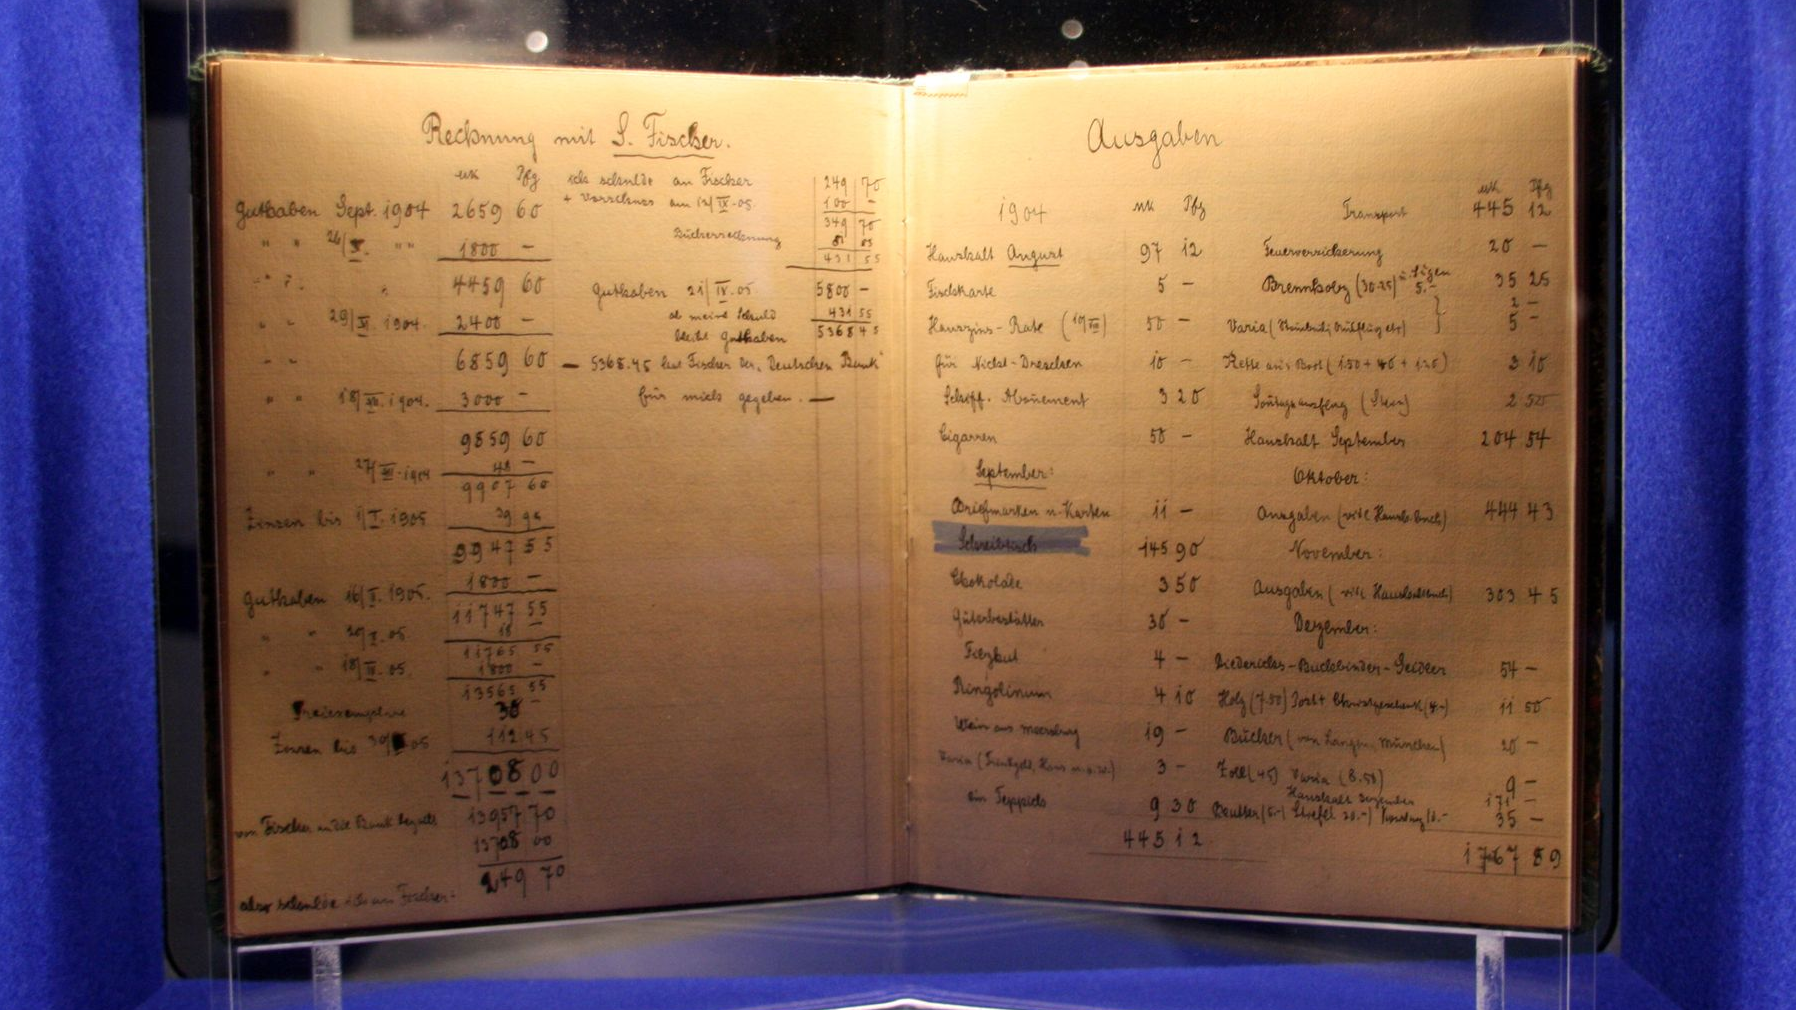 Rechnung mit S. Fischer.
Mk Pfg
Guthaben Sept. 1904 2659 60
" " 26/X. " " 1800 –
4459 60
" " 29/XI. 1904. 2400 –
6859 60
" " 18/XII. 1904. 3000 –
9859 60
" " 27/XII. 1904 48 –
9907 60
Zinsen bis 1/I. 1905
9947 55
1800 –
Guthaben 16/II. 1905.
11747 55
" " .05 18
11765 55
" " .05 1800 –
13565 55
Freiexemplare 30 –
Zinsen bis 05 112 45
13708 00
von Fischer an die Bank bezahlt 13957 70
13708 00
249 70
also schulde ich an Fischer
ich schulde an Fischer 249 70
+ Vorschuss am 12/IX. 05. 100 –
349 70
Bücherrechnung 81 85
431 55
Guthaben 21/IV. 05 5800 –
ab meine Schuld 431 55
bleibt Guthaben 5368 45
– 5368.45 hat Fischer der "Deutschen Bank"
für mich gegeben. –
Ausgaben
1904 Mk Pfg
Haushalt August 97 12
Fischkarte 5 –
Hauszins-Rate 50 –
für Nickel-Dreschen 10 –
Schiff. Abonement 3 20
Cigarren 50 –
September:
Briefmarken u. Karten 11 –
Schreibtisch 145 90
Chokolade 3 50
Güterbestätter 30 –
Filzhut 4 –
Ringolinum 4 10
Wein aus Meersburg 19 –
Varia (Trinkgeld, Hans u.s.w.) 3 –
ein Teppich 9 30
445 12
Mk Pfg
Transport 445 12
Feuerversicherung 20 –
Brennholz (30.25) u. Sägen 5.– 35 25
2 –
Varia 5 –
Kette ans Boot (1.50 + 40 + 1.20) 3 10
Sonntagsausflug (Stein) 2 50
Haushalt September 204 54
Oktober:
Ausgaben (vide Haush.buch) 444 43
November:
Ausgaben (vide Haushaltbuch) 303 45
Dezember:
Diederichs-Buchbinder-Geidler 54 –
Holz (7.50) Post + Christgeschenk (4.–) 11 50
Bücher (von Langen, München) 20 –
Zoll (45) Varia (8.55) 9 –
Haushalt Dezember 171 –
Stiefel 20.–) 35 –
1767 89